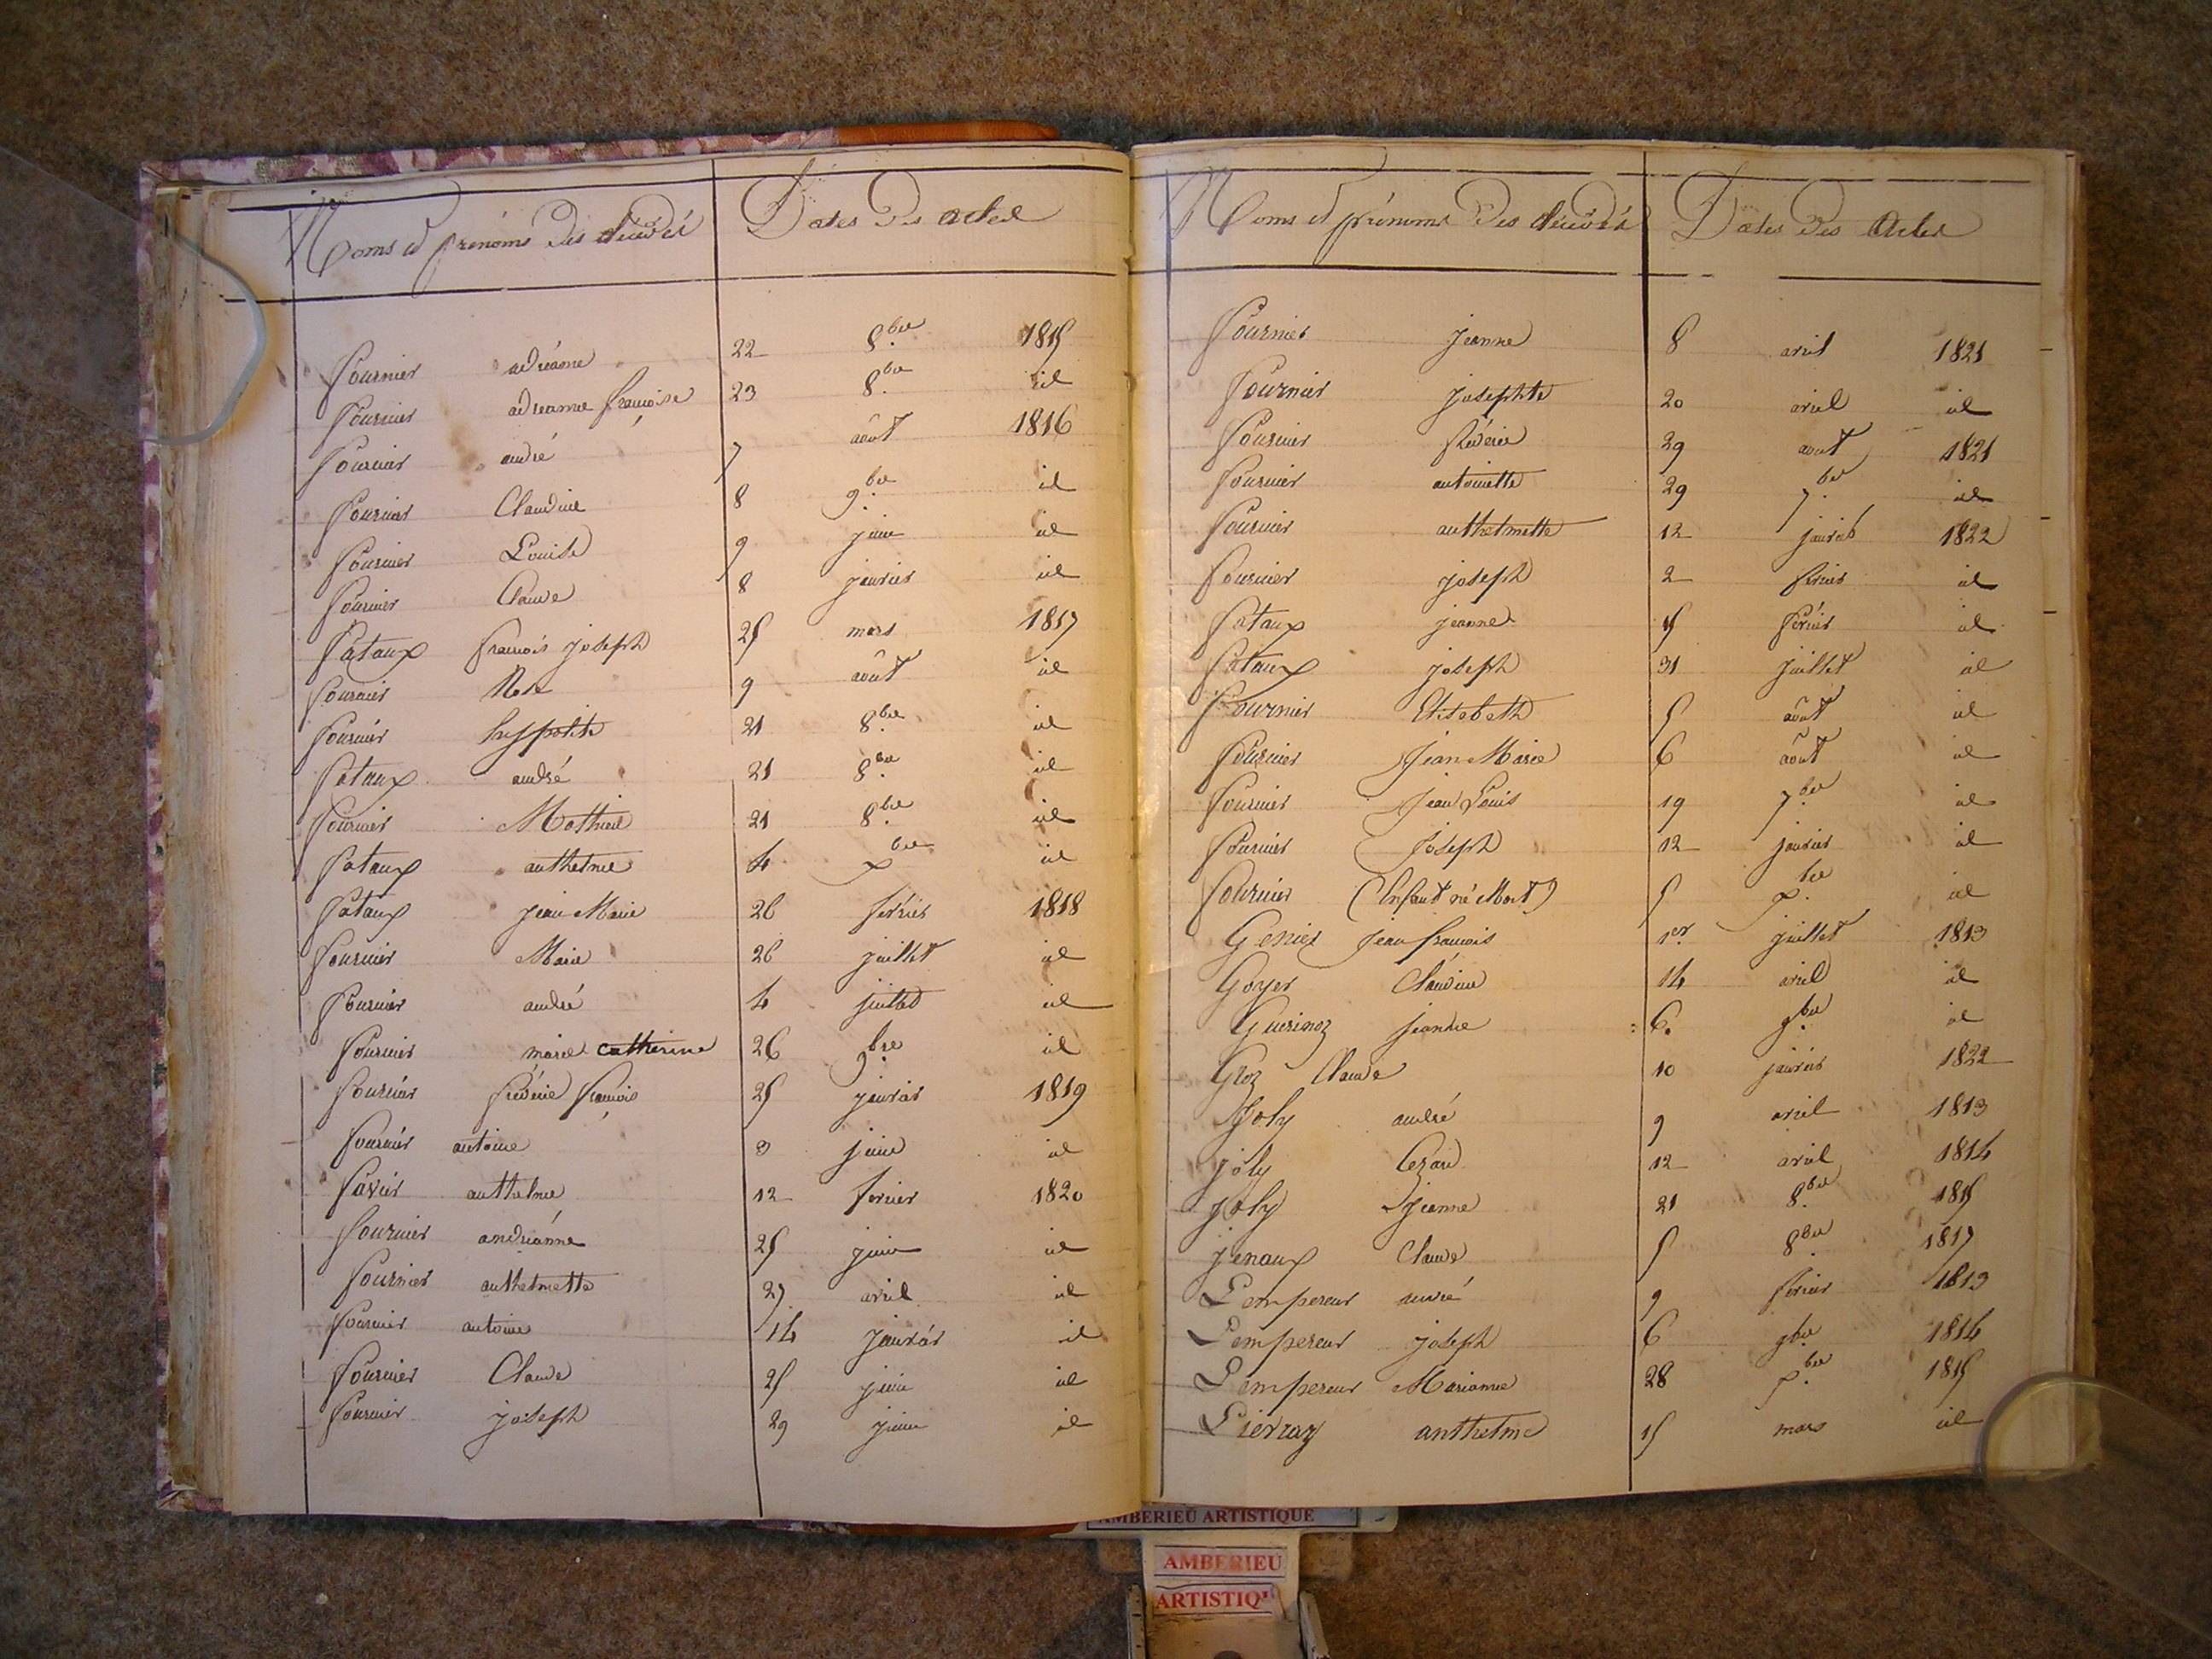 Noms et prénoms des décédés Dates des actes
Fournier adréanne 22 8.bre 1815
Fournier adreanne françoise 23 8.bre id
Fournier andré 7 août 1816
Fournier Claudine 8 9.bre id
Fournier Louise 9 juin id
Fournier Claude 8 janvier id
Fataux françois joseph 25 mars 1817
Fournier Rose 9 août id
Fournier hyppolite 21 8.bre id
Fataux andré 21 8.bre id
Fournier Mathieu 21 8.bre id
Fataux anthelme 4 x.bre id
Fataux jean Marie 26 février 1818
Fournier Marie 26 juillet id
Fournier andré 4 juillet id
Fournier marie catherine 26 9.bre id
Fournier fréderic françois 25 janvier 1819
Fournier antoine 3 juin id
Favier anthelme 12 fevrier 1820
Fournier andréanne 25 juin id
Fournier anthelmette 27 avril id
Fournier antoine 14 janvier id
Fournier Claude 25 juin id
Fournier joseph 29 juin id
Noms et prénoms des décédés Dates des Actes
Fournier jeanne 8 avril 1821
Fournier josephte 20 avril id
Fournier 29 aout 1821
Fournier antoinette 29 7.bre id
Fournier anthelmette 12 janvier 1822
Fournier joseph 2 février id
Fataux jeanne 15 février id
Fataux joseph 31 juillet id
Fournier Elisabeth 5 août id
Fournier Jean Marie 6 août id
Fournier Jean Louis 19 7.bre id
Fournier Joseph 12 janvier id
Fournier (Enfant né Mort) 5 x.bre id
Genier Jean françois 1er juillet 1813
Goyer Claudine 14 avril id
Guerinoz jeanne 6. 9.bre id
Groz Claude 10 janvier 1822
Joly andré 9 avril 1813
joly Cezard 12 avril 1814
Joly Jeanne 21 8.bre 1815
jenoux Claude 5 8.bre 1817
Lempereur andré 9 février 1813
Lempereur joseph 6 9.bre 1814
Lempereur Marianne 28 x.bre 1815
Lievraz anthelme 15 mars id
AMBERIEU ARTISTIQUE
AMBERIEU
ARTISTIQ